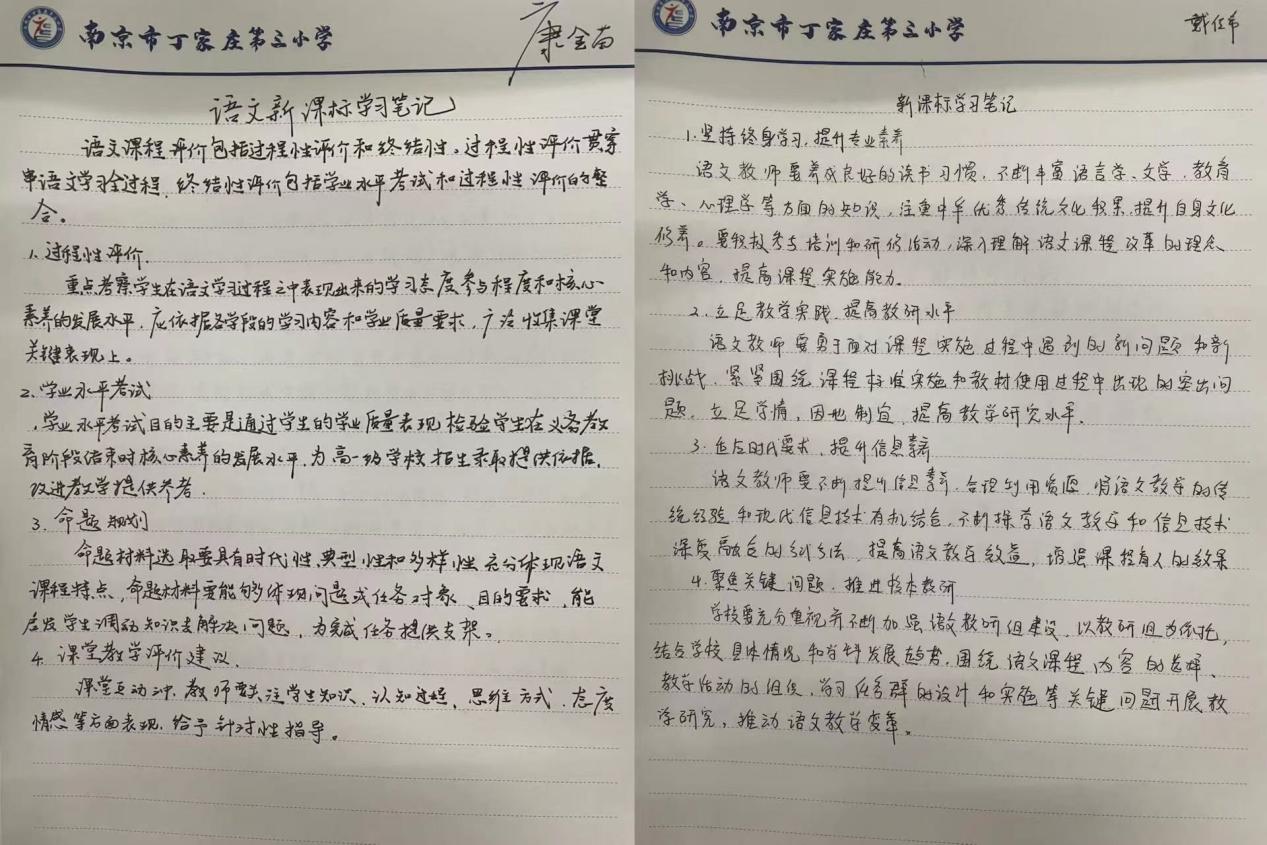 南京市丁家庄第三小学
康金苗
语文新课标学习笔记
语文课程评价包括过程性评价和终结性。过程性评价贯穿
串语文学习全过程，终结性评价包括学业水平考试和过程性评价的整
合。
1. 过程性评价.
重点考察学生在语文学习过程之中表现出来的学习态度参与程度和核心
素养的发展水平，应依据各学段的学习内容和学业质量要求，广泛收集课堂
关键表现上。
2. 学业水平考试
学业水平考试目的主要是通过学生的学业质量表现检验学生在义务教
育阶段结束时核心素养的发展水平，为高一级学校招生录取提供依据，
改进教学提供参考.
3. 命题规划
命题材料选取要具有时代性、典型性和多样性充分体现语文
课程特点，命题材料要能够体现问题或任务对象、目的要求，能
启发学生调动知识去解决问题，为完成任务提供支架。
4. 课堂教学评价建议.
课堂互动中，教师要关注学生知识、认知过程、思维方式、态度
情感等方面表现，给予针对性指导。
南京市丁家庄第三小学
新课标学习笔记
1. 坚持终身学习，提升专业素养
语文教师要养成良好的读书习惯，不断丰富语言学、文学、教育
学、心理学等方面的知识，注重中华优秀传统文化积累，提升自身文化
修养。要积极参与培训和研修活动，深入理解语文课程改革的理念
和内容，提高课程实施能力。
2. 立足教学实践，提高教研水平
语文教师要勇于面对课程实施过程中遇到的新问题和新
挑战，紧紧围绕课程标准实施和教材使用过程中出现的突出问
题，立足学情，因地制宜，提高教学研究水平。
3. 适应时代要求，提升信息素养
语文教师要不断提升信息素养，合理利用资源，将语文教学的传
统经验和现代信息技术有机结合，不断探索语文教学和信息技术
深度融合的新方法，提高语文教学效益，增强课程育人的效果
4. 聚焦关键问题，推进校本教研
学校要充分重视并不断加强语文教研组建设，以教研组为依托，
结合学校具体情况和学科发展趋势，围绕语文课程内容的选择、
教学活动的组织，学习任务群的设计和实施等关键问题开展教
学研究，推动语文教学变革。